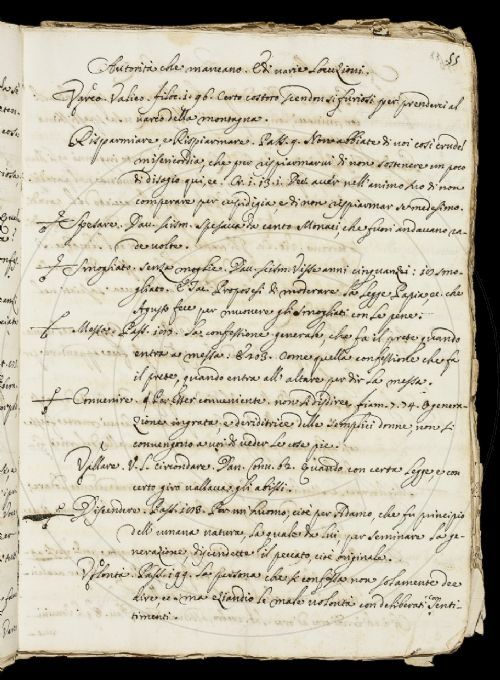 55
Autorità che mancano. E di varie Locuzioni.
Varco. Valico. filoc. 1. 96. Certo costoro scendon sì furiosi per prenderci al
varco della montagna.
Risparmiare, e Rispiarmare. Pass. 9. Non abbiate di voi così crudel
misericordia, che per rispiarmarvi di non sostenere un poco
di disagio qui, ec. Cr. 1. 13. 1. Dee aver nell'animo suo di non
comperare per cupidigia, e di non rispiarmar se medesimo.
Spesare. Dav. Scism. Spesava da canto Monaci che fuori andavano ra-
de volte.
Smogliato. Senza moglie. Dav. Scism. Visse anni cinquansei: 19 smo-
gliato. E Propose si di moderare la Legge Papia ec. che
Agusto fece per muovere gli smogliati con le pene.
Messa. Pass. 103. La confessione generale, che fa il prete quando
entra a messa: E 103. Come quella confessione che fa
il prete, quando entra all'altare per dir la messa.
Convenire. Per Esser conveniente. non si disdire. fiam. 7. 74. O genera-
zione ingrata, e deriditrice delle semplici donne, non si
convengono a voi di veder le cose pie.
Vallare. V. L. circondare. Dan. Conv. 62. Quando con certa Legge, e con
certo giro vallava gli abissi.
Discendere. Pass. 108. Per un huomo, cioè per Adamo, che fu principio
dell'umana natura, la quale da lui, per seminare la ge-
nerazione discendette il peccato, cioè originale.
Volontà. Pass. 144. La persona che si confessa non solamente dee
dire ec. ma eziandio le male volontà con deliberati con Senti-
timenti.